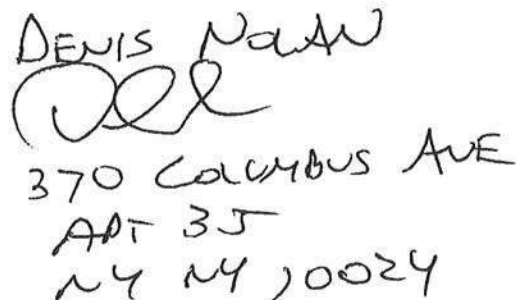 DENIS NOLAN
370 COLUMBUS AVE
APT 35
NY NY 10024